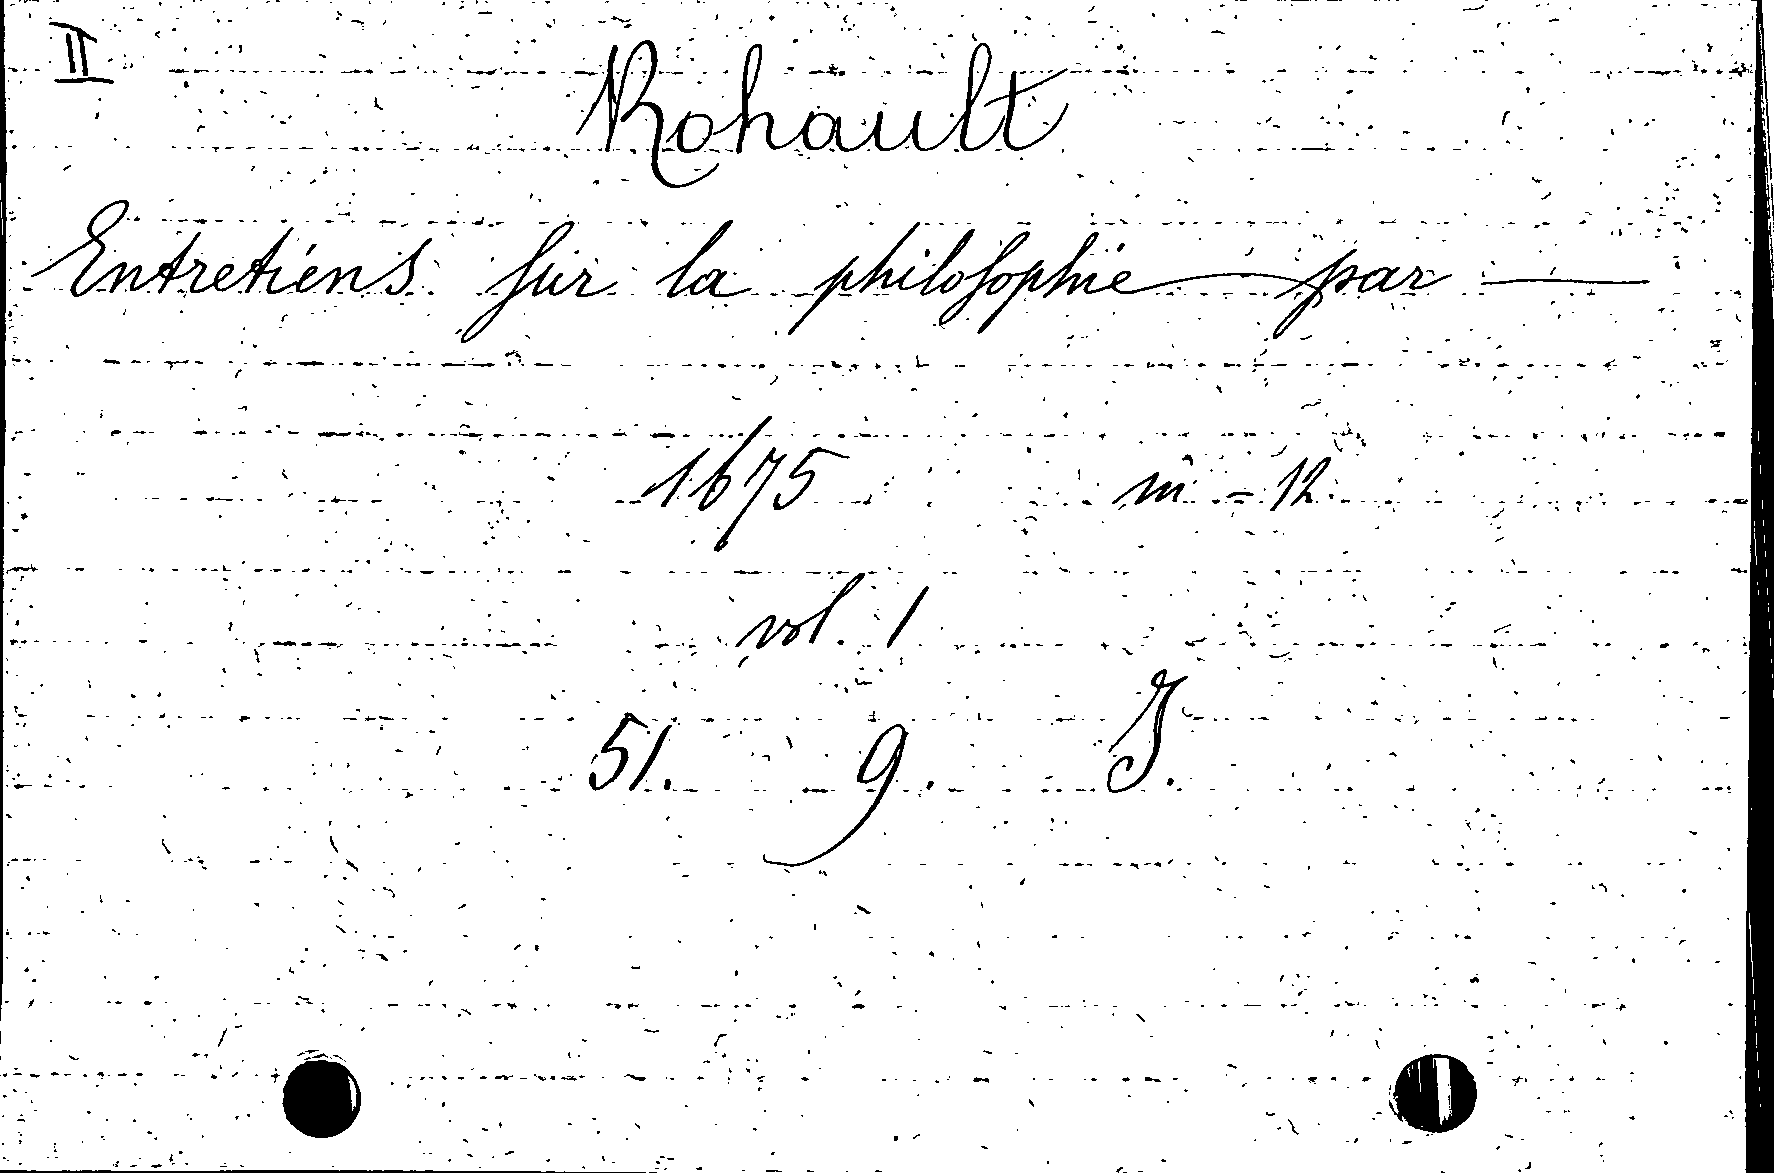 II
Rohault
Entretiens sur la philosophie par —
1675 in-12
vol. 1
51. 9. J.